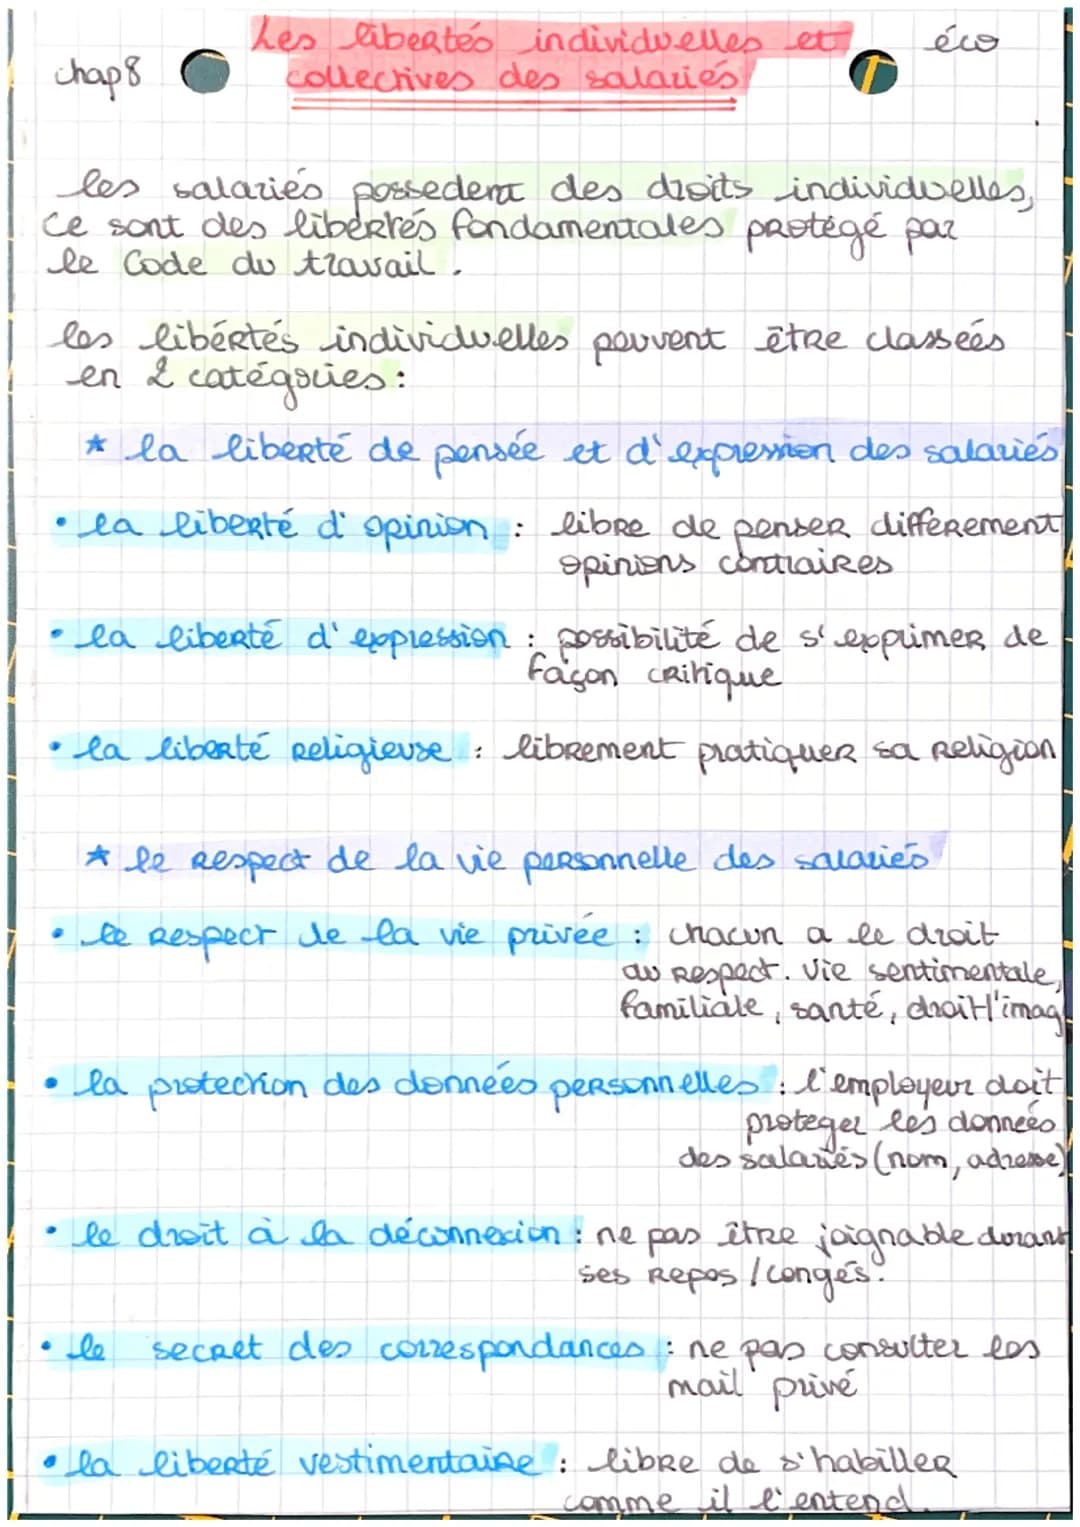 Les libertés individuelles et
éco
chap 8
collectives des salariés
les salariés possedent des droits individuelles,
ce sont des libertés fondamentales protégé par
le Code du travail.
les libértés individuelles peuvent être classées
en 2 catégories :
* la liberté de pensée et d'expression des salariés
• la liberté d'opinion : libre de penser différement
opinions contraires
• la liberté d'expression : possibilité de s'exprimer de
façon critique
• la liberté religieuse : librement pratiquer sa religion
* le respect de la vie personnelle des salariés
• le respect de la vie privée : chacun a le droit
au respect. Vie sentimentale,
familiale, santé, droit l'imag
• la protection des données personnelles : l'employeur doit
proteger les données
des salariés (nom, adresse)
• le droit à la déconnexion : ne pas être joignable durant
ses repos / congés.
• le secret des correspondances : ne pas consulter les
mail privé
• la liberté vestimentaire : libre de s'habiller
comme il l'entend.